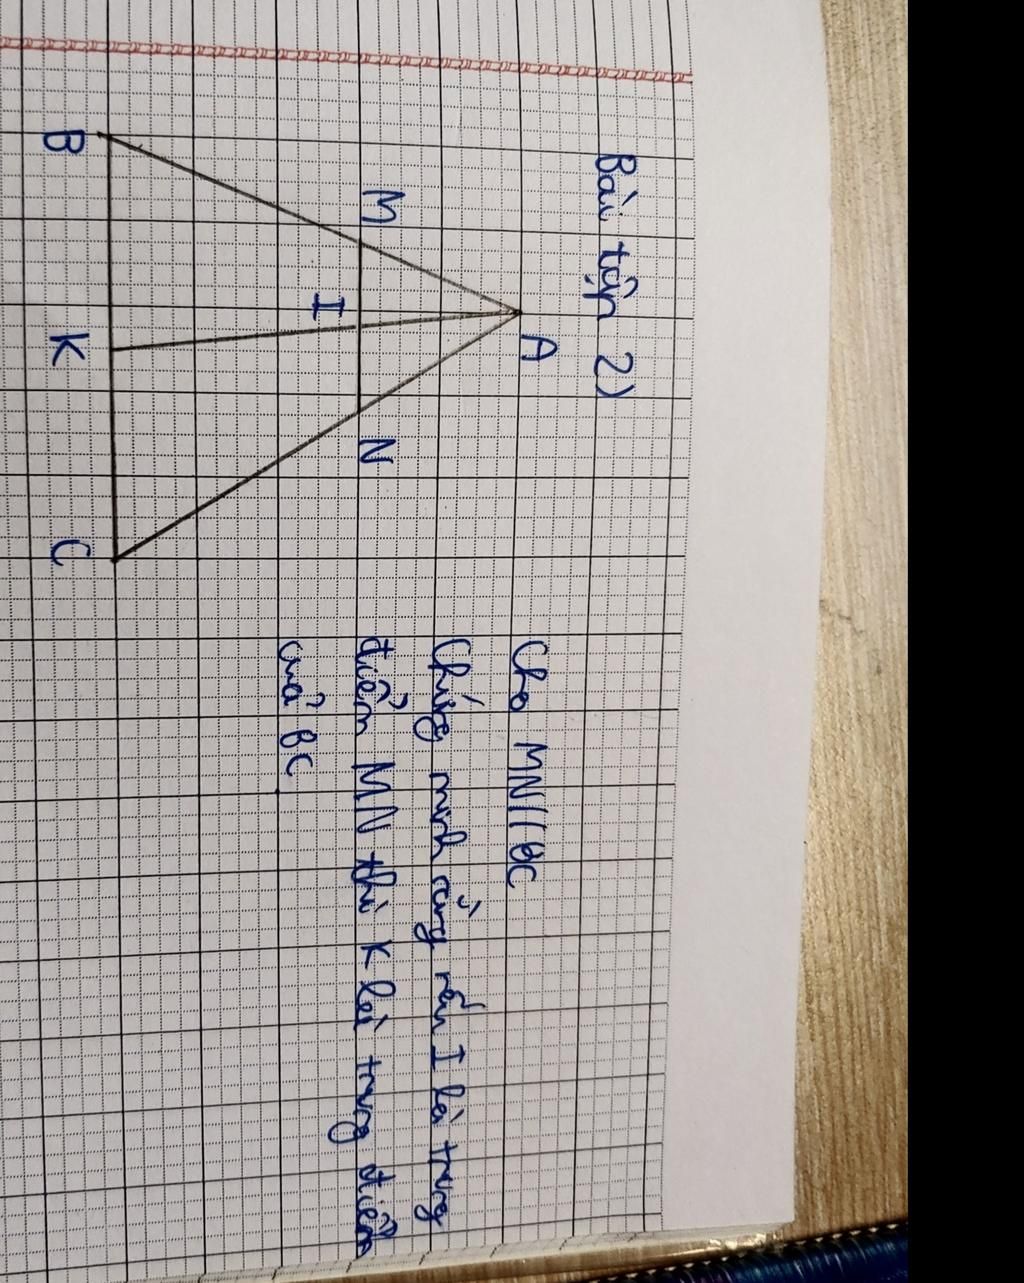 Bài tập 2)
A
M
N
I
B
K
C
Cho MN//BC
Chứng minh rằng nếu I là trung
điểm MN thì K là trung điểm
của BC